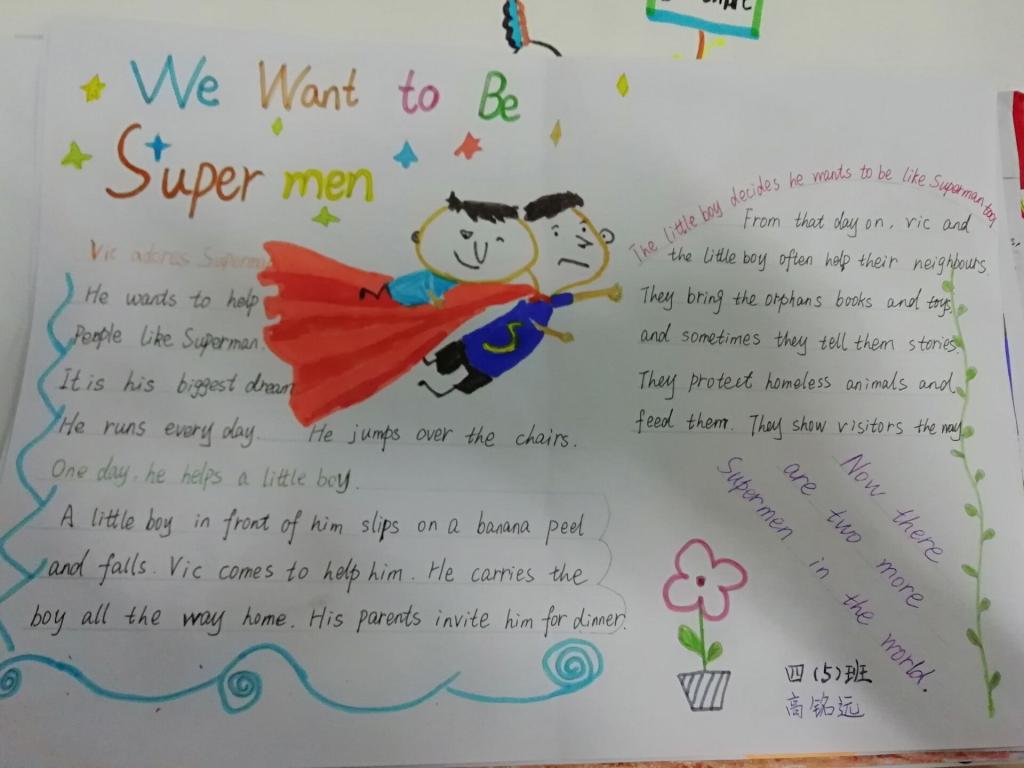 We Want to Be
Super men
Vic adores Superman
He wants to help
People like Superman.
It is his biggest dream
He runs every day. He jumps over the chairs.
One day, he helps a little boy.
A little boy in front of him slips on a banana peel
and falls. Vic comes to help him. He carries the
boy all the way home. His parents invite him for dinner.
The little boy decides he wants to be like Superman too.
From that day on, vic and
the little boy often help their neighbours
They bring the orphans books and toys.
and sometimes they tell them stories.
They protect homeless animals and
feed them. They show visitors the way
Now there
are two more
Supermen in the world.
四(5)班
高铭远